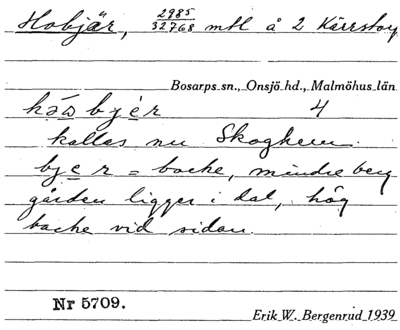 Hobjär, 2985/32768 mtl å 2 Kärrstorp
Bosarps sn., Onsjö hd., Malmöhus län
hås byér 4
kallas nu Skoghem.
byer = backe, mindre berg
gården ligger i dal, hög
backe vid sidan.
Nr 5709.
Erik W. Bergenrud 1939